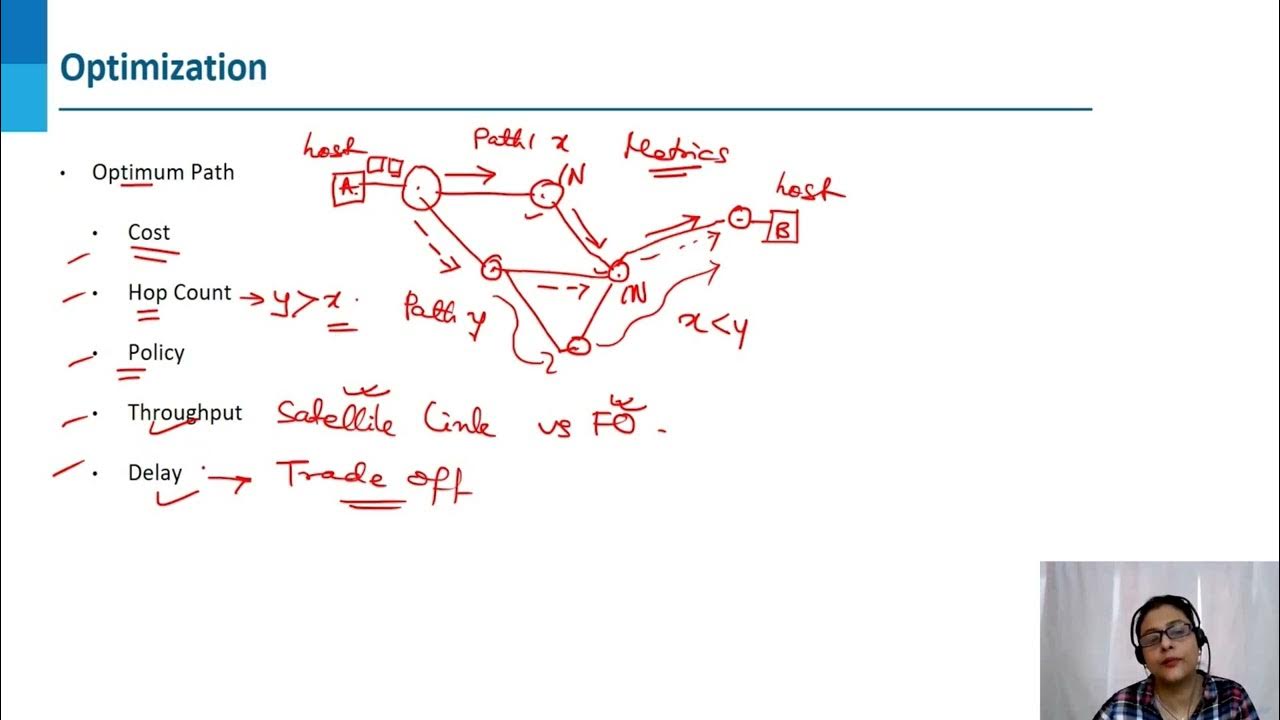 Optimization
host
Path 1 x
Metrics
N
host
• Optimum Path
A
B
• Cost
• Hop Count → y > x.
Path y
N
x < y
• Policy
• Throughput Satellite Link vs FO.
• Delay → Trade off